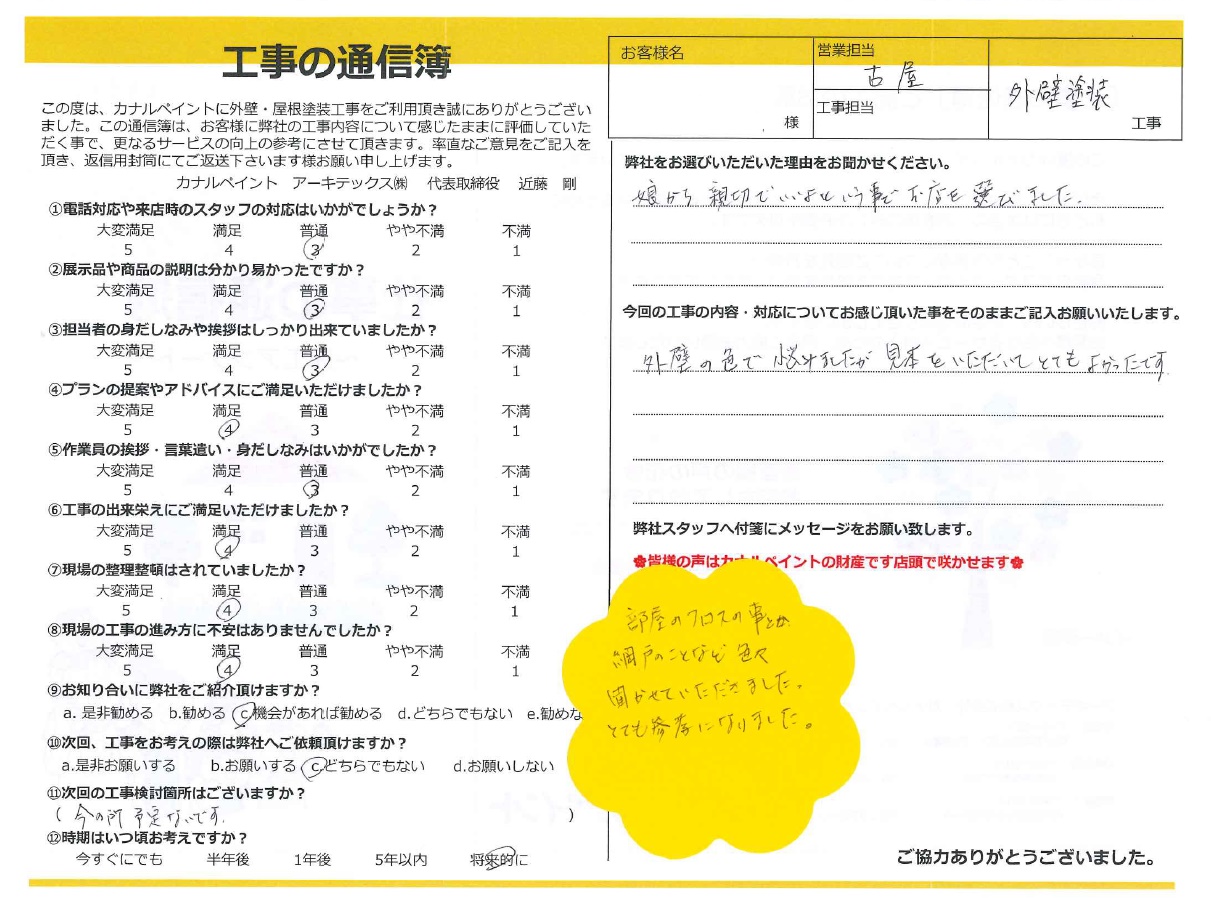 工事の通信簿
この度は、カナルペイントに外壁・屋根塗装工事をご利用頂き誠にありがとうござい
ました。この通信簿は、お客様に弊社の工事内容について感じたままに評価していた
だく事で、更なるサービスの向上の参考にさせて頂きます。率直なご意見をご記入を
頂き、返信用封筒にてご返送下さいます様お願い申し上げます。
カナルペイント アーキテックス㈱ 代表取締役 近藤 剛
①電話対応や来店時のスタッフの対応はいかがでしょうか？
大変満足 満足 普通 やや不満 不満
5 4 3 2 1
②展示品や商品の説明は分かり易かったですか？
大変満足 満足 普通 やや不満 不満
5 4 3 2 1
③担当者の身だしなみや挨拶はしっかり出来ていましたか？
大変満足 満足 普通 やや不満 不満
5 4 3 2 1
④プランの提案やアドバイスにご満足いただけましたか？
大変満足 満足 普通 やや不満 不満
5 4 3 2 1
⑤作業員の挨拶・言葉遣い・身だしなみはいかがでしたか？
大変満足 満足 普通 やや不満 不満
5 4 3 2 1
⑥工事の出来栄えにご満足いただけましたか？
大変満足 満足 普通 やや不満 不満
5 4 3 2 1
⑦現場の整理整頓はされていましたか？
大変満足 満足 普通 やや不満 不満
5 4 3 2 1
⑧現場の工事の進み方に不安はありませんでしたか？
大変満足 満足 普通 やや不満 不満
5 4 3 2 1
⑨お知り合いに弊社をご紹介頂けますか？
a. 是非勧める b.勧める c.機会があれば勧める d.どちらでもない e.勧めな
⑩次回、工事をお考えの際は弊社へご依頼頂けますか？
a.是非お願いする b.お願いする c.どちらでもない d.お願いしない
⑪次回の工事検討箇所はございますか？
( 今の所 予定ないです. )
⑫時期はいつ頃お考えですか？
今すぐにでも 半年後 1年後 5年以内 将来的に
お客様名
様
営業担当
古屋
工事担当
外壁塗装
工事
弊社をお選びいただいた理由をお聞かせください。
娘から 親切でいいよという事でお店を選びました.
今回の工事の内容・対応についてお感じ頂いた事をそのままご記入お願いいたします。
外壁の色で 悩みましたが 見本をいただいてとてもよかったです
弊社スタッフへ付箋にメッセージをお願い致します。
✿皆様の声はカナルペイントの財産です店頭で咲かせます✿
部屋のクロスの事とか
網戸のことなど 色々
聞かせていただきました。
とても参考になりました。
ご協力ありがとうございました。